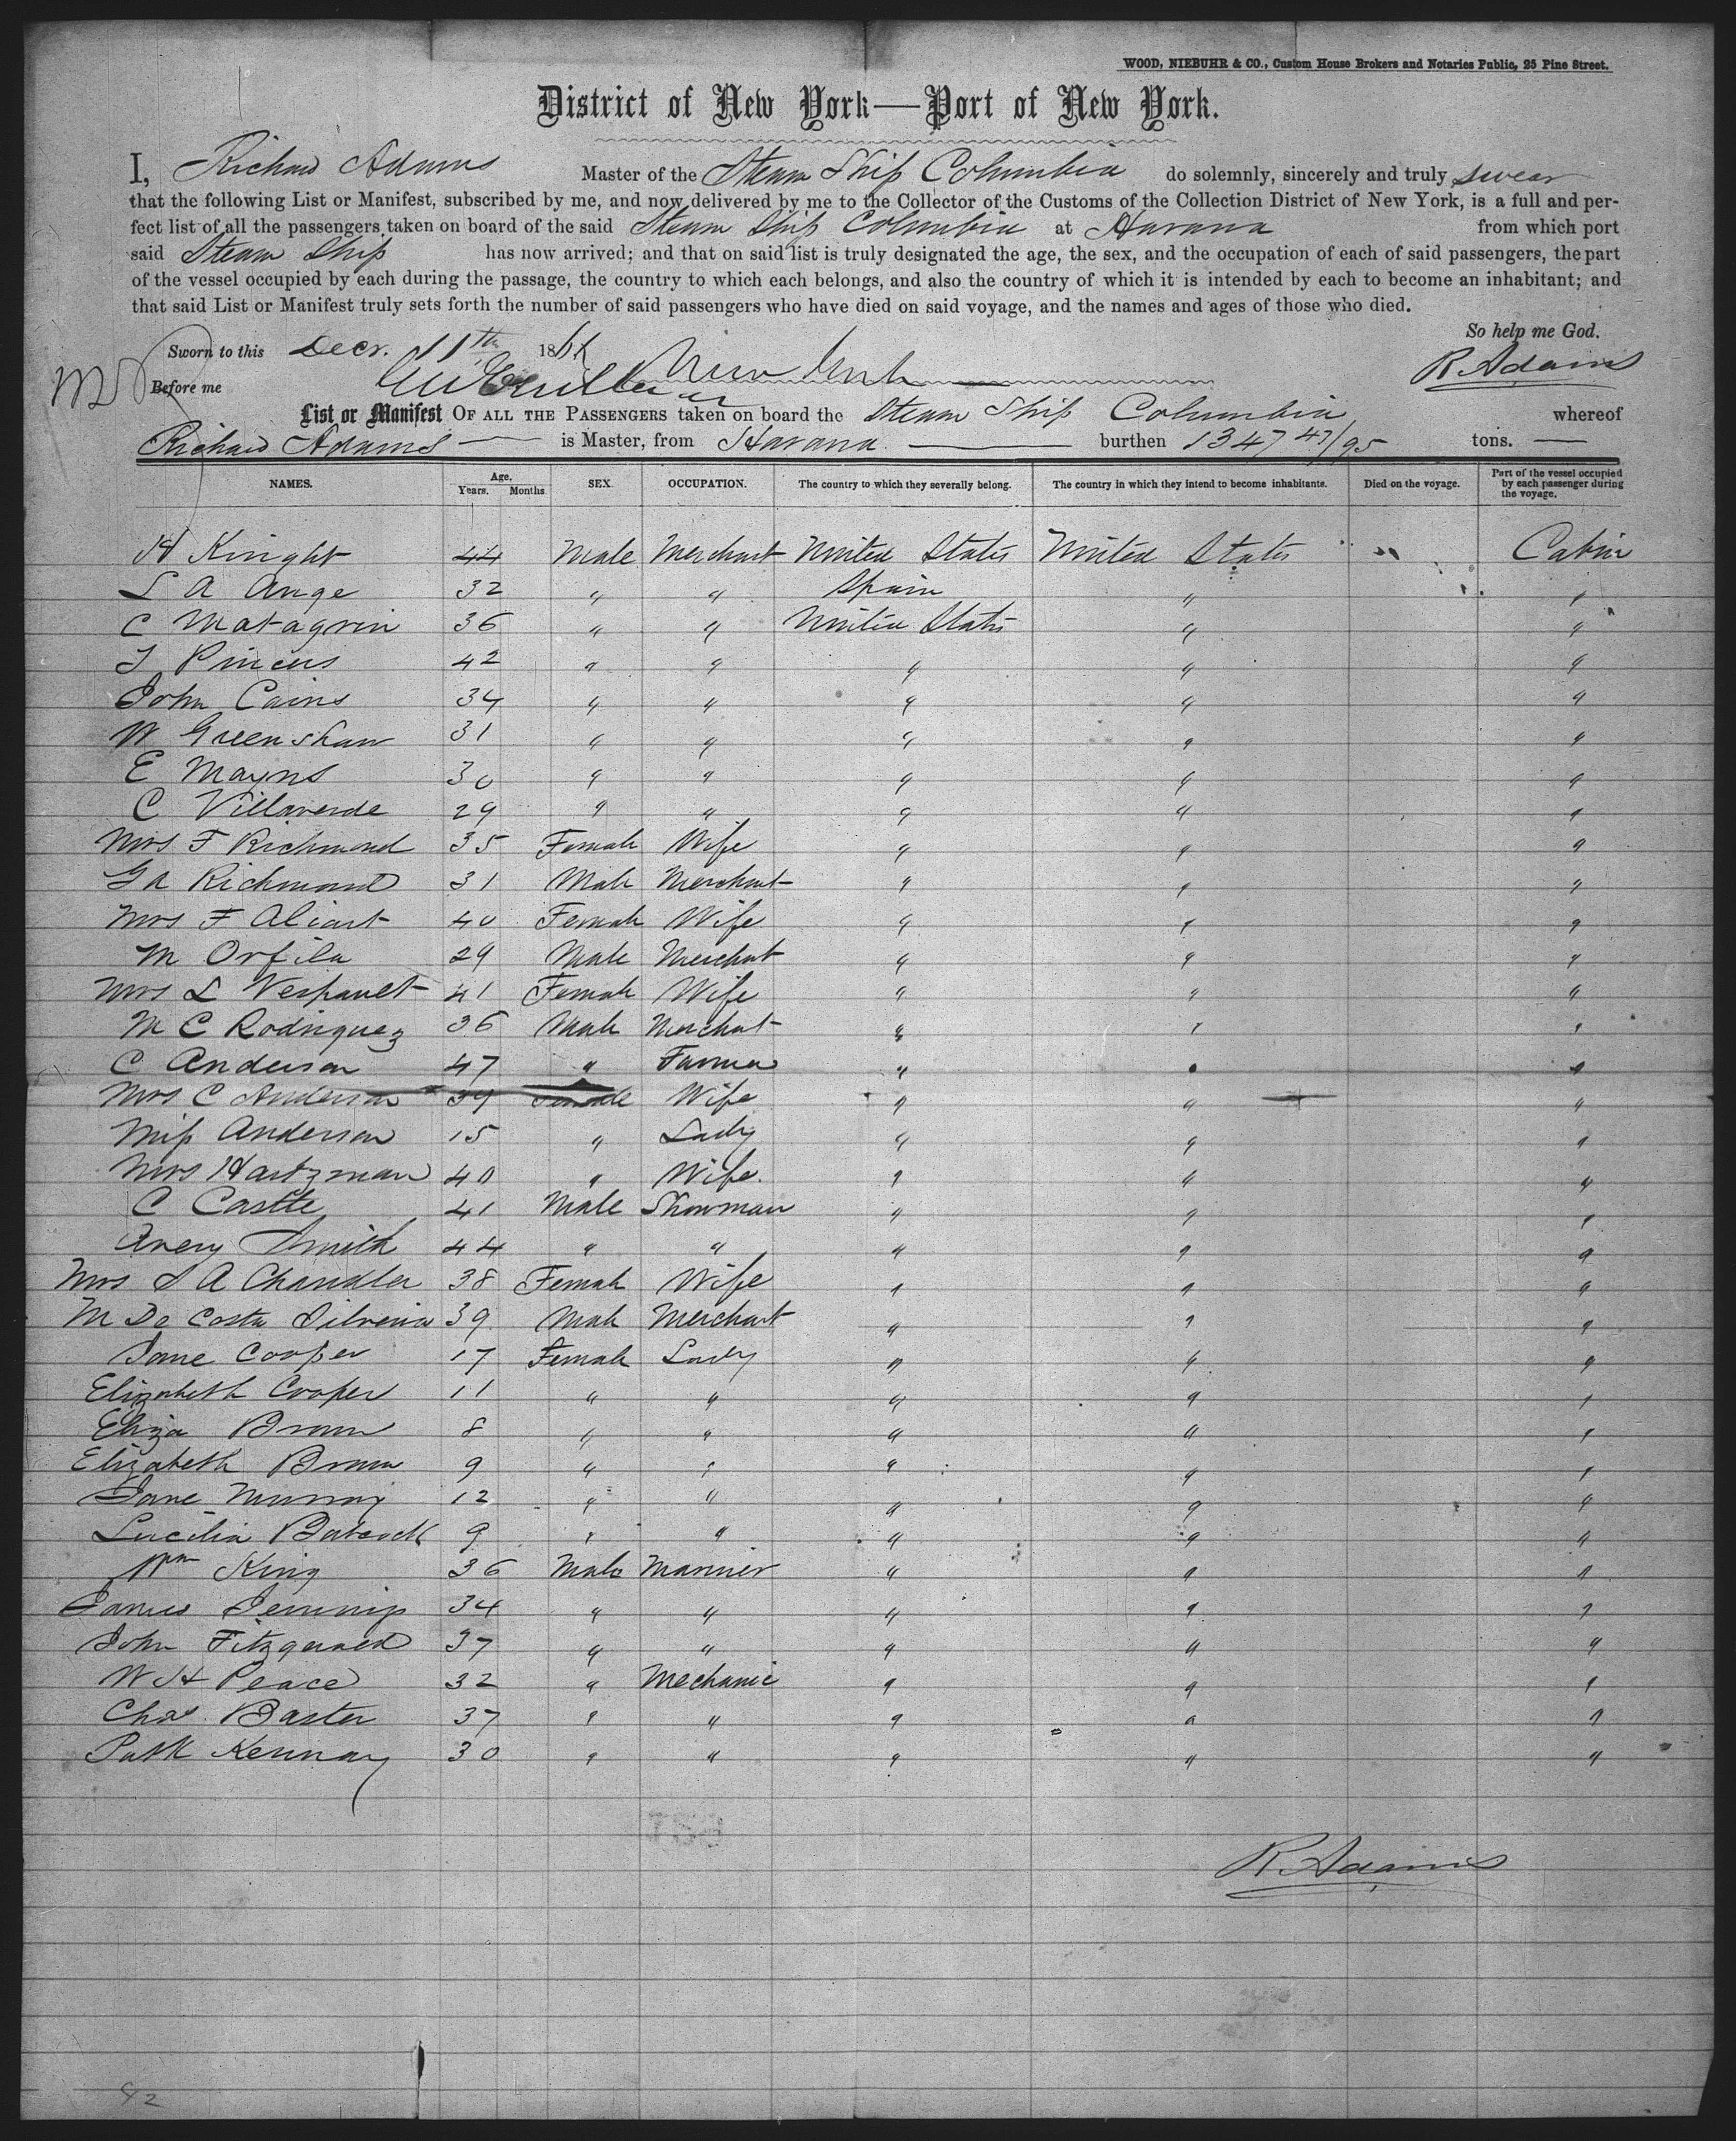 WOOD, NIEBUHR & CO., Custom House Brokers and Notaries Public, 25 Pine Street.
District of New York—Port of New York.
I, Richard Adams Master of the Steam Ship Columbia do solemnly, sincerely and truly swear
that the following List or Manifest, subscribed by me, and now delivered by me to the Collector of the Customs of the Collection District of New York, is a full and per-
fect list of all the passengers taken on board of the said Steam Ship Columbia at Havana from which port
said Steam Ship has now arrived; and that on said list is truly designated the age, the sex, and the occupation of each of said passengers, the part
of the vessel occupied by each during the passage, the country to which each belongs, and also the country of which it is intended by each to become an inhabitant; and
that said List or Manifest truly sets forth the number of said passengers who have died on said voyage, and the names and ages of those who died.
So help me God.
Sworn to this Decr. 11th 186 New York R Adams
Before me
List or Manifest OF ALL THE PASSENGERS taken on board the Steam Ship Columbia whereof
Richard Adams is Master, from Havana burthen 1347 47/95 tons.
NAMES. Age. Years. Months SEX. OCCUPATION. The country to which they severally belong. The country in which they intend to become inhabitants. Died on the voyage. Part of the vessel occupied by each passenger during the voyage.
H Knight 44 Male Merchant United States United States " Cabin
L A Ange 32 " " Spain " "
C Matagrin 36 " " United States " "
J Pincus 42 " " " " "
John Cains 34 " " " " "
W Greenshaw 31 " " " " "
E Mayns 30 " " " " "
C Villaverde 29 " " " " "
Mrs F Richmond 35 Female Wife " " "
G A Richmond 31 Male Merchant " " "
Mrs F Aliart 40 Female Wife " " "
M Orfila 29 Male Merchant " " "
Mrs L Vespault 41 Female Wife " " "
M C Rodriguez 36 Male Merchant " " "
C Anderson 47 " Farmer " " "
Mrs C Anderson 39 Female Wife " " "
Miss Anderson 15 " Lady " " "
Mrs Hartzman 40 " Wife " " "
C Castle 41 Male Showman " " "
Avery Smith 44 " " " " "
Mrs S A Chandler 38 Female Wife " " "
M De Costa Silveria 39 Male Merchant " " "
Jane Cooper 17 Female Lady " " "
Elizabeth Cooper 11 " " " " "
Eliza Brown 8 " " " " "
Elizabeth Brown 9 " " " " "
Jane Murray 12 " " " " "
Lucilia Babcock 9 " " " " "
Wm King 36 Male Mariner " " "
James Jennings 34 " " " " "
John Fitzgerald 37 " " " " "
W H Peace 32 " Mechanic " " "
Chas Baxter 37 " " " " "
Patk Kennay 30 " " " " "
R Adams
42